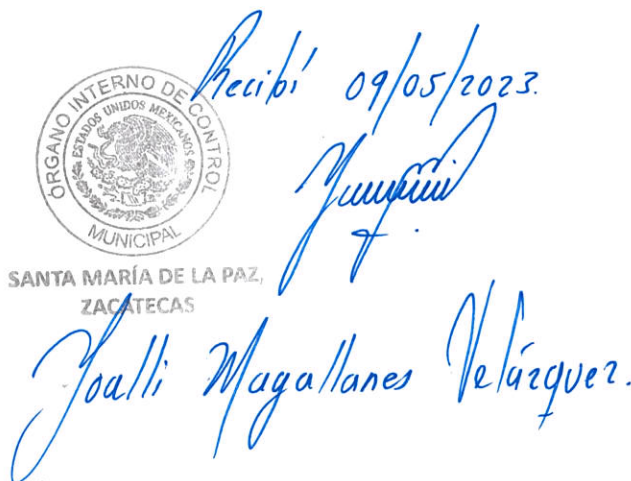 Recibí 09/05/2023.
ÓRGANO INTERNO DE CONTROL
ESTADOS UNIDOS MEXICANOS
MUNICIPAL
SANTA MARÍA DE LA PAZ,
ZACATECAS
Yoalli Magallanes Velázquez.